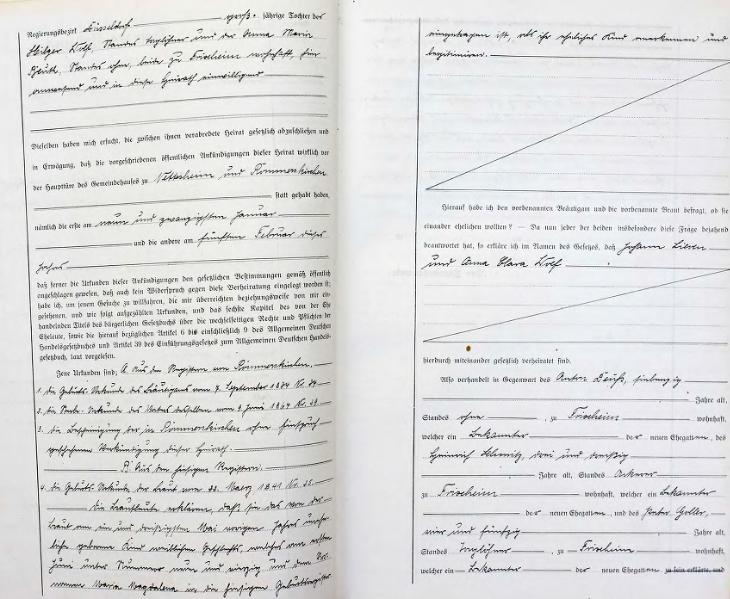 Regierungsbezirk Düsseldorf groß- jährige Tochter des
Hilger Wolf, Standes Taglöhner und der Anna Maria
Standes ohne, beide zu Frixheim wohnhaft, hier
anwesend und in diese Heirath einwilligend
Dieselben haben mich ersucht, die zwischen ihnen verabredete Heirat gesetzlich abzuschließen und
in Erwägung, daß die vorgeschriebenen öffentlichen Ankündigungen dieser Heirat wirklich vor
der Hauptthüre des Gemeindehauses zu Nettesheim und Rommerskirchen
statt gehabt haben,
nämlich die erste am neun und zwanzigsten Januar
und die andere am fünften Februar dieses
Jahres
daß ferner die Urkunden dieser Ankündigungen den gesetzlichen Bestimmungen gemäß öffentlich
angeschlagen gewesen, daß auch kein Widerspruch gegen diese Verheiratung eingelegt worden ist;
habe ich, um jenem Gesuche zu willfahren, die mir überreichten beziehungsweise von mir ein-
gesehenen, und wie folgt aufgezählten Urkunden, und das sechste Kapitel des von der Ehe
handelnden Titels des bürgerlichen Gesetzbuchs über die wechselseitigen Rechte und Pflichten der
Eheleute, sowie die hierauf bezüglichen Artikel 6 bis einschließlich 9 des Allgemeinen Deutschen
Handelsgesetzbuchs und Artikel 39 des Einführungsgesetzes zum Allgemeinen Deutschen Handels-
gesetzbuch, laut vorgelesen.
Jene Urkunden sind; A Aus den Registern von Rommerskirchen.
1. die Geburts-Urkunde des Bräutigams vom September
2. die Sterbe-Urkunde des Vaters desselben vom Juni
3. die Bescheinigung der in Rommerskirchen ohne Einspruch
geschehenen Verkündigung dieser Heirath.
B. Aus den hiesigen Registern.
4. die Geburts-Urkunde der Braut vom 22. März 1841 No
Die Brautleute erklären, daß sie das von der
Braut am ein und dreißigsten Mai vorigen Jahres unehe-
lich geborene Kind weiblichen Geschlechts, welches am ersten
Juni unter Nummer neun und vierzig und dem Vor-
namen Maria Magdalena in die hiesigen Geburtsregister
eingetragen ist, als ihr eheliches Kind anerkennen und
legitimiren.
Hierauf habe ich den vorbenannten Bräutigam und die vorbenannte Braut befragt, ob sie
einander ehelichen wollten? — Da nun jeder der beiden insbesondere diese Frage bejahend
beantwortet hat, so erkläre ich im Namen des Gesetzes, daß Johann
und Anna Clara Wolf
hierdurch miteinander gesetzlich verheiratet sind.
Also verhandelt in Gegenwart des Anton siebenzig
Jahre alt,
Standes ohne, zu Frixheim wohnhaft,
welcher ein Bekannter der neuen Ehegatten, des
Heinrich drei und dreißig
Jahre alt, Standes Ackerer
zu Frixheim wohnhaft, welcher ein Bekannter
der neuen Ehegatten, und des Peter
vier und fünfzig Jahre alt,
Standes Taglöhner, zu Frixheim wohnhaft,
welcher ein Bekannter der neuen Ehegatten zu sein erklärte, und